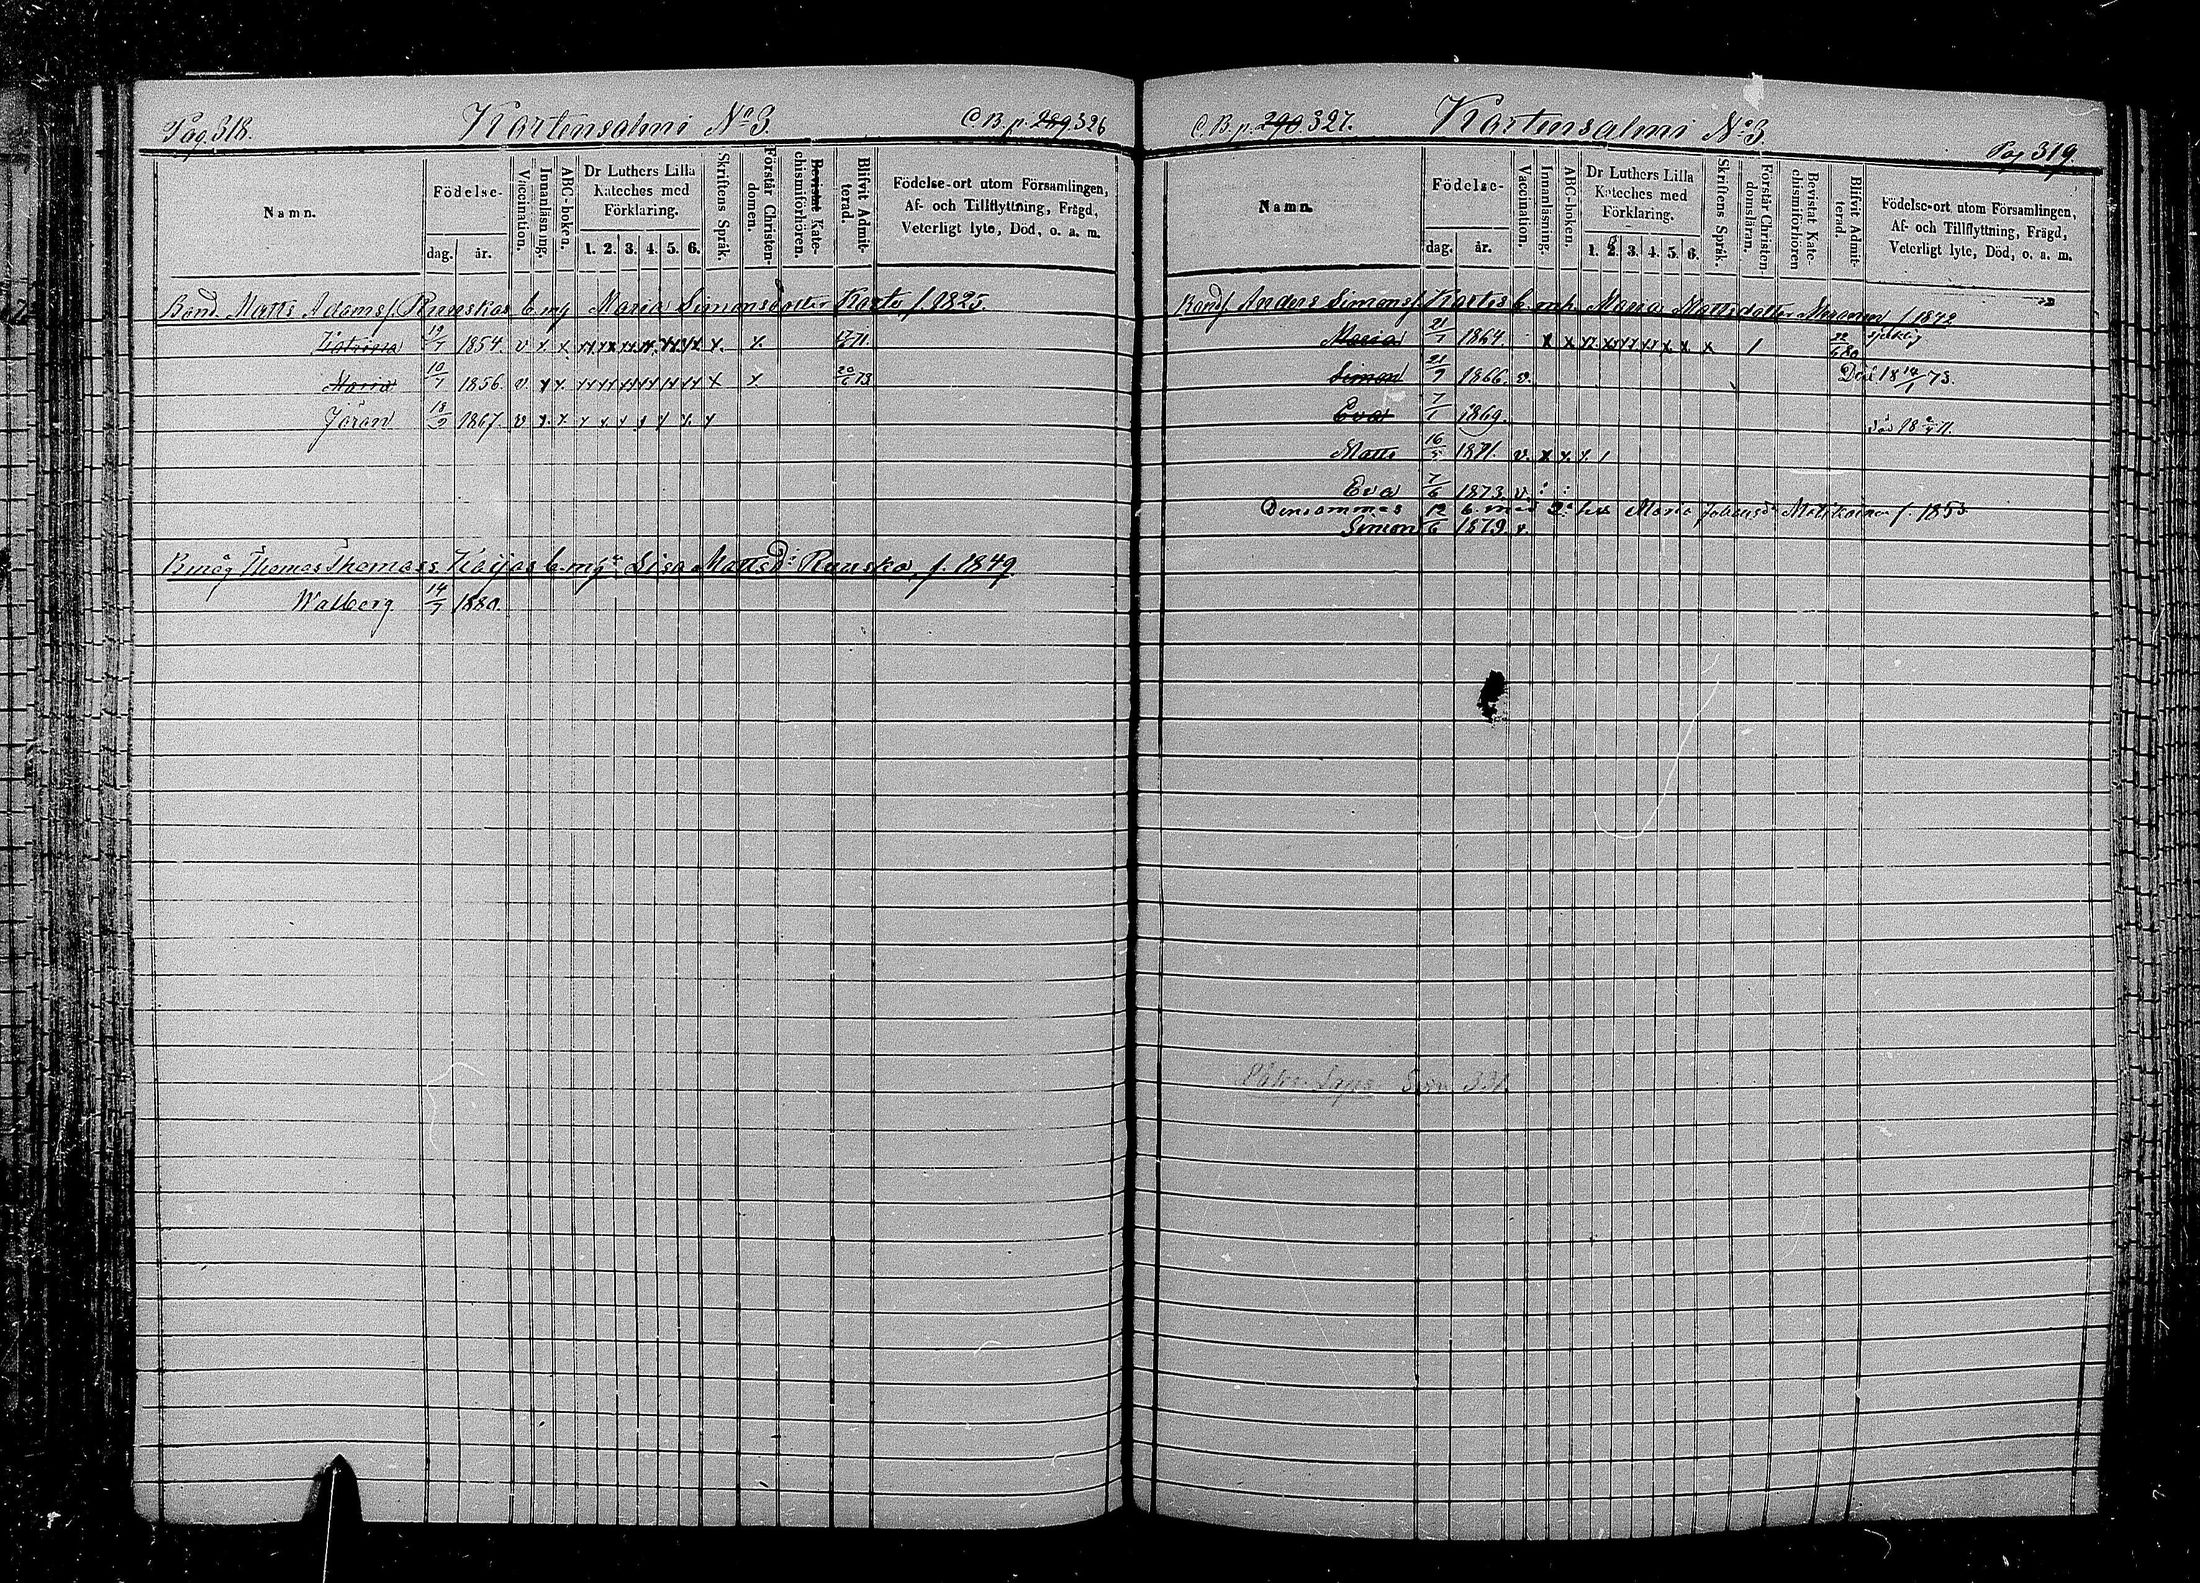 Pag. 318. Kartensalmi No 3. C.B.p. 289 326
Namn. Födelse- dag. år. Vaccination. Innanläsning. ABC-boken. Dr Luthers Lilla Kateches med Förklaring. 1. 2. 3. 4. 5. 6. Skriftens Språk. Förstår Christendomen. Bevistat Katechismiförhören. Blifvit Admitterad. Födelse-ort utom Församlingen, Af- och Tillflyttning, Frägd, Veterligt lyte, Död, o. a. m.
Bond. Matts Adamsf. Ruuskas b. mg Maria Simonsdotter Karto f. 1825.
Katrina 19/7 1854. v x x x. x.
Maria 10/7 1856. v. x x. x x 20/6 73
Jöran 18/9 1867. v x. x x x x x x x. x
Bmåg Thomas Thomass Kaijas b. mg Lisa Mattsd: Ruusko, f. 1849
Walberg 14/7 1880.
C.B.p. 290 327. Kartensalmi No 3 Pag 319.
Namn. Födelse- dag. år. Vaccination. Innanläsning. ABC-boken. Dr Luthers Lilla Kateches med Förklaring. 1. 2. 3. 4. 5. 6. Skriftens Språk. Förstår Christendomsläran. Bevistat Katechismiförhören Blifvit Admitterad. Födelse-ort utom Församlingen, Af- och Tillflyttning, Frägd, Veterligt lyte, Död, o. a. m.
Bondf. Anders Simonsf. Kartos b. mh. Maria Mattsdotter f. 1842
Maria 21/1 1864. x x x 1 22/6 80 sjuklig
Simon 21/9 1866. v. Död 18 14/1 73.
Eva 7/1 1869. död 18 71.
Matts 16/5 1871. v. x x. x. 1
Eva 7/6 1873. v.
Densammes b. med 2a hu Maria Johansd. f. 1853
Simon 12/6 1879. v.